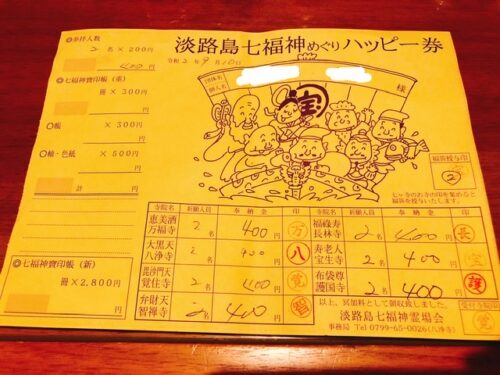 ◎参拝人数
2名×200円
400円
◎七福神寶印帳(重)
冊×300円
円
◎帳
×300円
円
◎軸・色紙
×500円
円
計 円
◎七福神寶印帳(新)
冊×2,800円
円
淡路島七福神めぐりハッピー券
令和2年9月10日
団体名
個人名
様
宝
福笹授与印
②
七ヶ寺のお寺の印を集めると
福笹を授与いたします。
寺院名 祈願人員 奉納金 印
恵美酒 万福寺 2名 400円 万
大黒天 八浄寺 2名 400円 八
毘沙門天 覚住寺 2名 400円 覚
弁財天 智禅寺 2名 400円 智
寺院名 祈願人員 奉納金 印
福禄寿 長林寺 2名 400円 長
寿老人 宝生寺 2名 400円 宝
布袋尊 護国寺 2名 400円 護
以上、冥加料として領収致しました。
淡路島七福神霊場会
事務局 Tel 0799-65-0026(八浄寺)